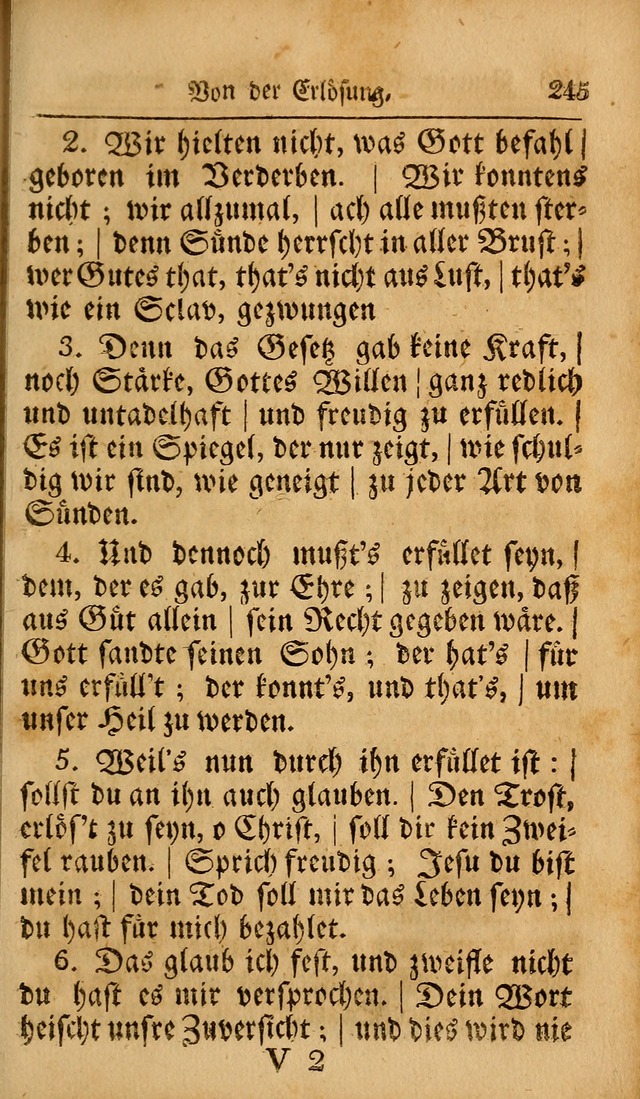 Von der Erlösung. 245
2. Wir hielten nicht, was Gott befahl |
geboren im Verderben. | Wir konntens
nicht ; wir allzumal, | ach alle mußten ster-
ben ; | denn Sünde herrscht in aller Brust ; |
wer Gutes that, that's nicht aus Lust, | that's
wie ein Sclav, gezwungen
3. Denn das Gesetz gab keine Kraft, |
noch Stärke, Gottes Willen | ganz redlich
und untadelhaft | und freudig zu erfüllen. |
Es ist ein Spiegel, der nur zeigt, | wie schul-
dig wir sind, wie geneigt | zu jeder Art von
Sünden.
4. Und dennoch mußt's erfüllet seyn, |
dem, der es gab, zur Ehre ; | zu zeigen, daß
aus Güt allein | sein Recht gegeben wäre. |
Gott sandte seinen Sohn ; der hat's | für
uns erfüll't ; der konnt's, und that's, | um
unser Heil zu werden.
5. Weil's nun durch ihn erfüllet ist : |
sollst du an ihn auch glauben. | Den Trost,
erlös't zu seyn, o Christ, | soll dir kein Zwei-
fel rauben. | Sprich freudig ; Jesu du bist
mein ; | dein Tod soll mir das Leben seyn ; |
du hast für mich bezahlet.
6. Das glaub ich fest, und zweifle nicht
du hast es mir versprochen. | Dein Wort
heischt unsre Zuversicht ; | und dies wird nie
V 2